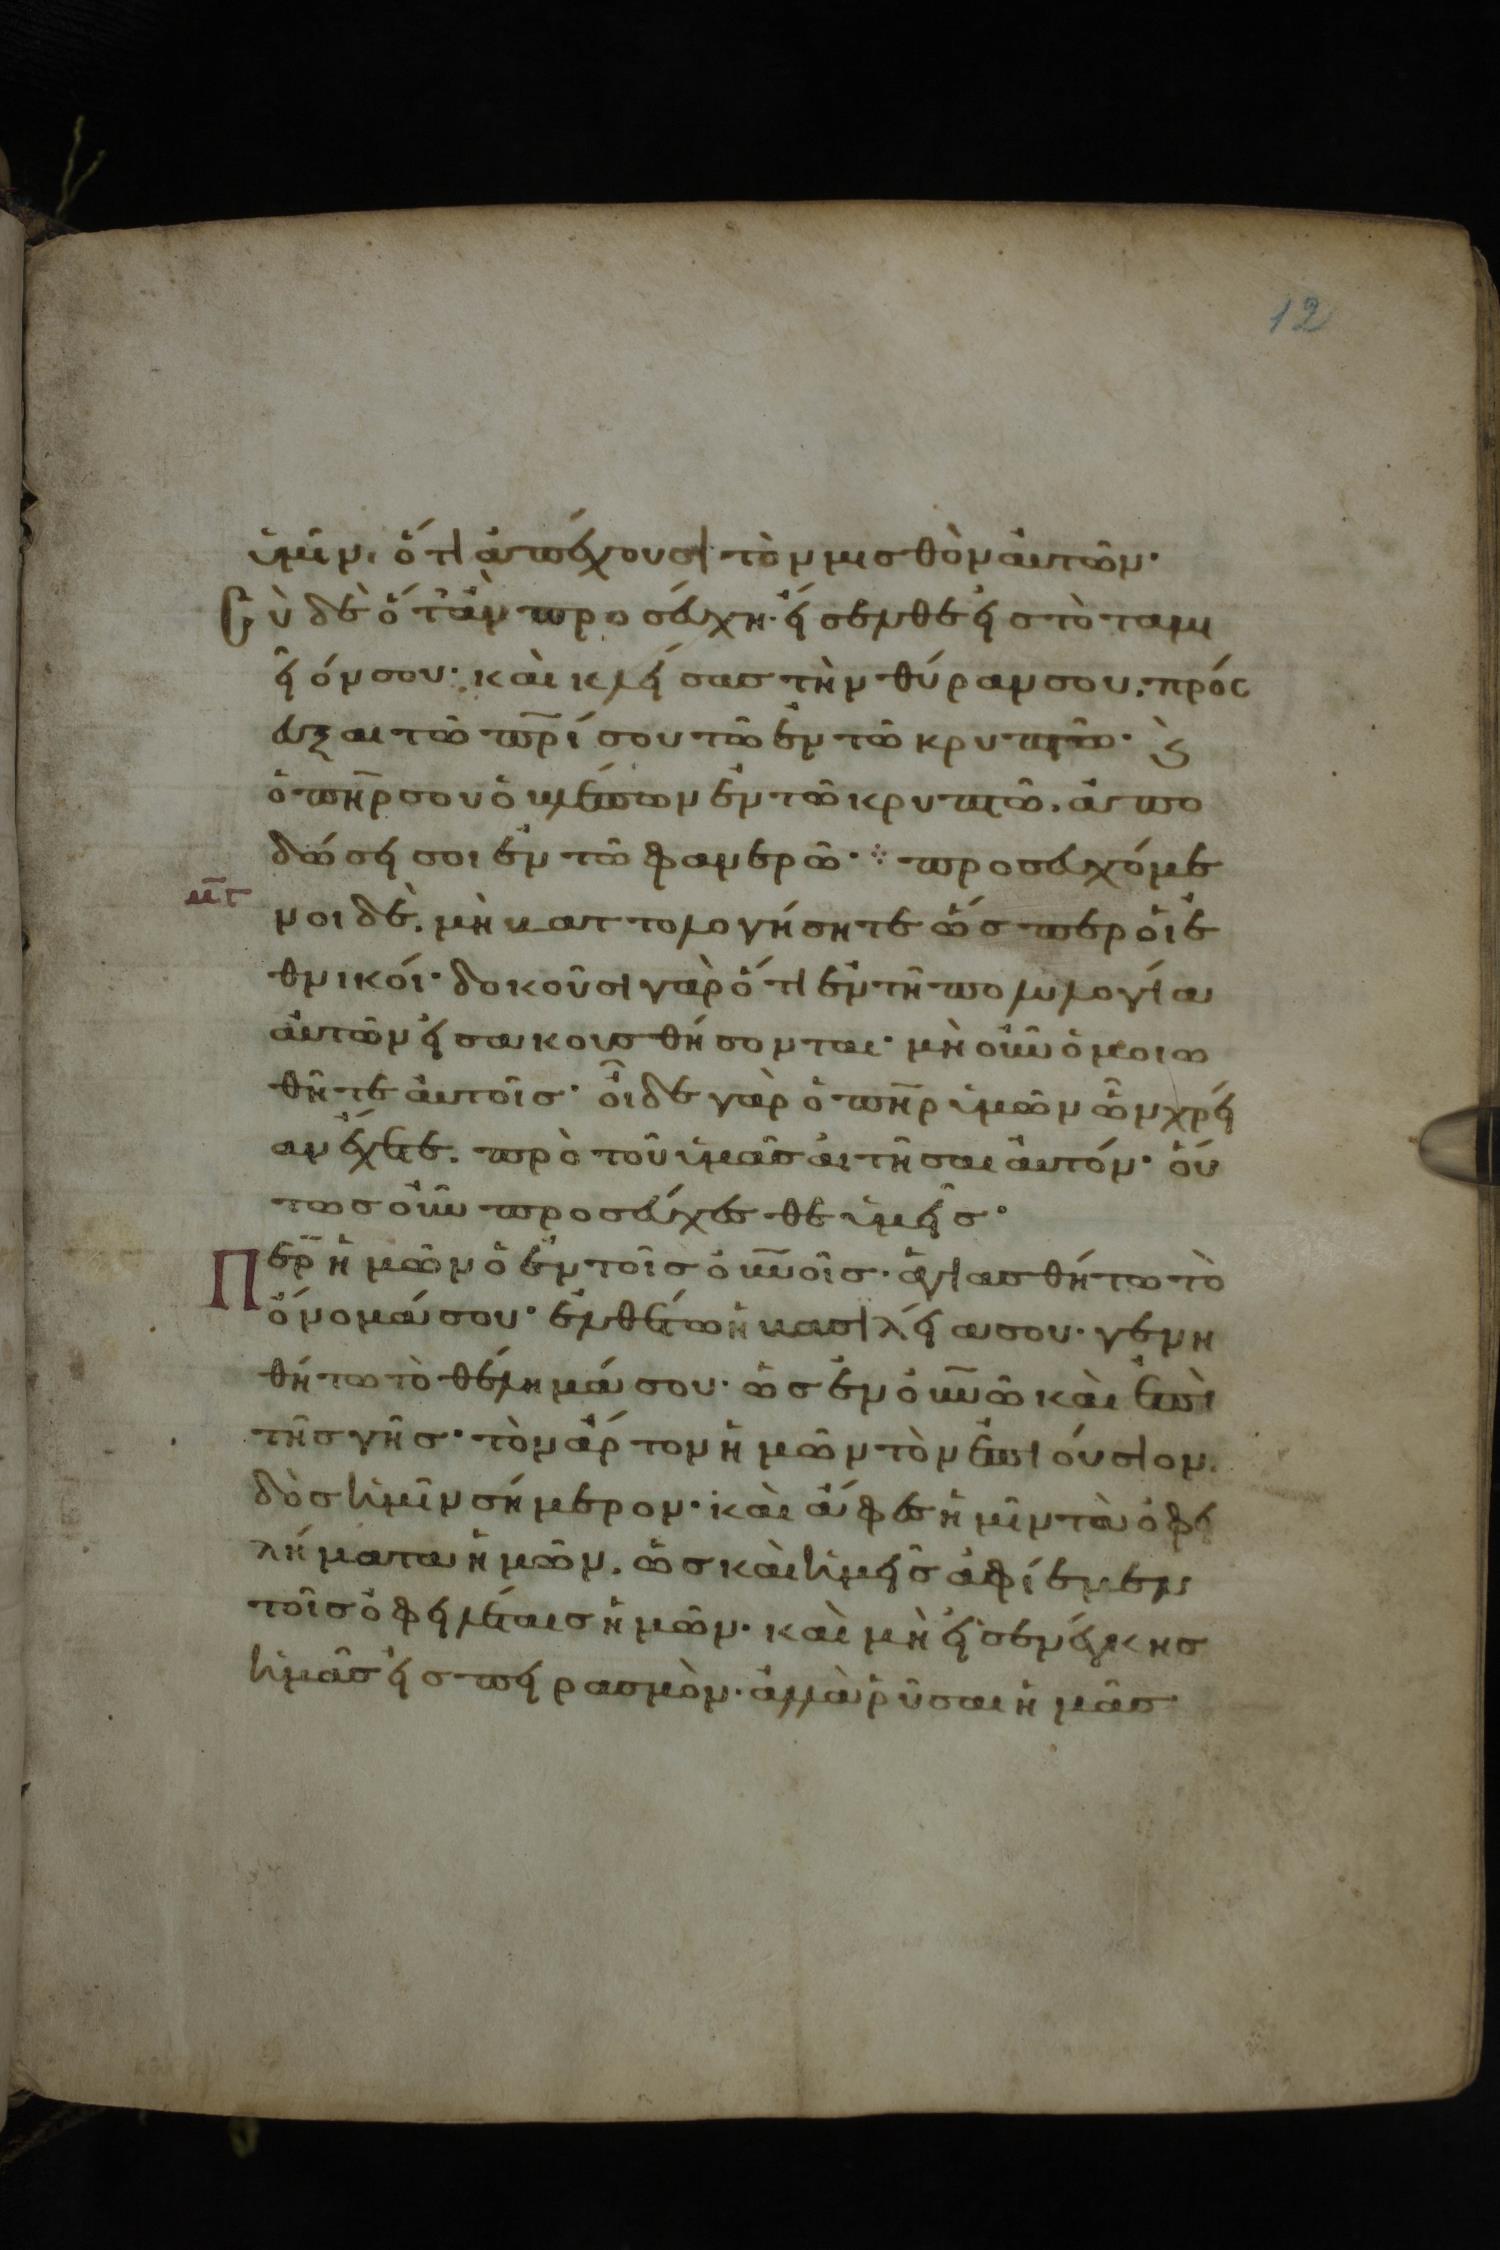 12
ὑμῖν, ὅτι ἀπέχουσι τὸν μισθὸν αὐτῶν·
Σὺ δὲ ὅταν προσεύχη· εἴσελθε εἰς τὸ ταμι
εῖόν σου· καὶ κλείσας τὴν θύραν σου, πρόσ
ευξαι τῶ πρ̅ί σου τῶ ἐν τῶ κρυπτῶ· ϗ̀
ὁ πη̅ρ σου ὁ βλέπων ἐν τῶ κρυπτῶ, ἀπο
δώσει σοι ἐν τῶ φανερῶ· ⁘ προσευχόμε
νοι δὲ, μὴ βαττολογήσητε ὥσπερ οἱ ἐ
θνικοί· δοκοῦσι γὰρ ὅτι ἐν τῆ πολυλογία
αὐτῶν εἰσακουσθήσονται· μὴ οὖν ὁμοιω
θῆτε αὐτοῖς· οἶδε γὰρ ὁ πη̅ρ ὑμῶν ὧν χρεί
αν ἔχετε, πρὸ τοῦ ὑμᾶς αἰτῆσαι αὐτόν· οὕ
τως οὖν προσεύχεσθε ὑμεῖς·
Περ̅ ἡμῶν ὁ ἐν τοῖς οὐ̅νοῖς· ἁγιασθήτω τὸ
ὄνομά σου· ἐλθέτω ἡ βασιλεία σου· γενη
θήτω τὸ θέλημά σου· ὡς ἐν οὐ̅νῶ καὶ ἐπὶ
τῆς γῆς· τὸν ἄρτον ἡμῶν τὸν ἐπιούσιον,
δὸς ἡμῖν σήμερον· καὶ ἄφες ἡμῖν τὰ ὀφει
λήματα ἡμῶν, ὡς καὶ ἡμεῖς ἀφίεμεν
τοῖς ὀφειλέταις ἡμῶν· καὶ μὴ εἰσενέγκης
ἡμᾶς εἰς πειρασμὸν· ἀλλὰ ῥῦσαι ἡμᾶς